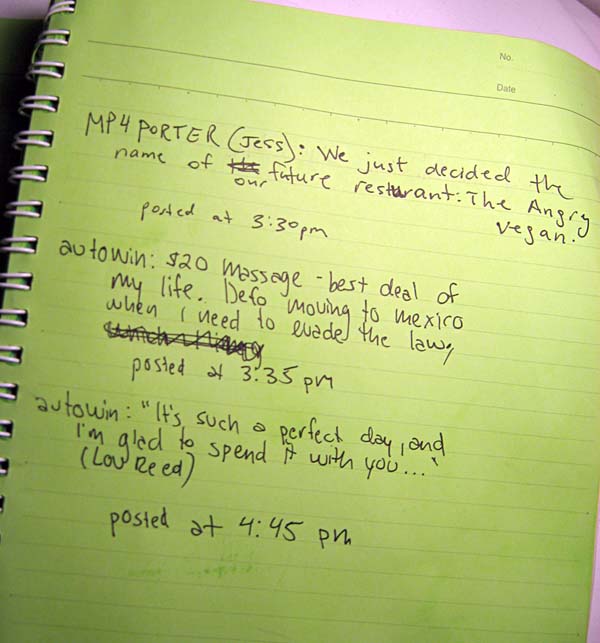 No.
Date
MP4 PORTER (Jess): We just decided the
name of our future resturant: The Angry
vegan.
posted at 3:30pm
autowin: $20 massage - best deal of
my life. Defo moving to mexico
when I need to evade the law,
posted at 3:35 pm
autowin: "It's such a perfect day, and
I'm glad to spend it with you..."
(Lou Reed)
posted at 4:45 pm